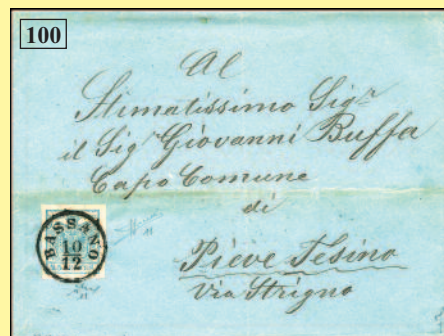 100
Al
Stimatissimo Sigr
il Sigr Giovanni Buffa
Capo Comune
di
Pieve Tesino
Via Strigno
BASSANO
10
12